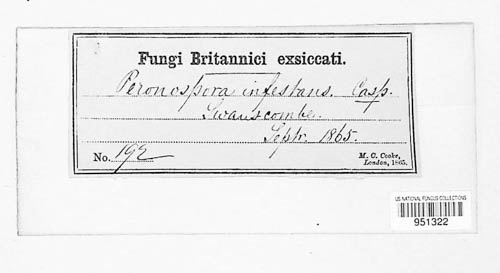 Fungi Britannici exsiccati.
Peronospora infestans. Casp.
Swanscombe.
Septr. 1865.
No. 192
M. C. Cooke,
London, 1865.
US NATIONAL FUNGUS COLLECTIONS
951322